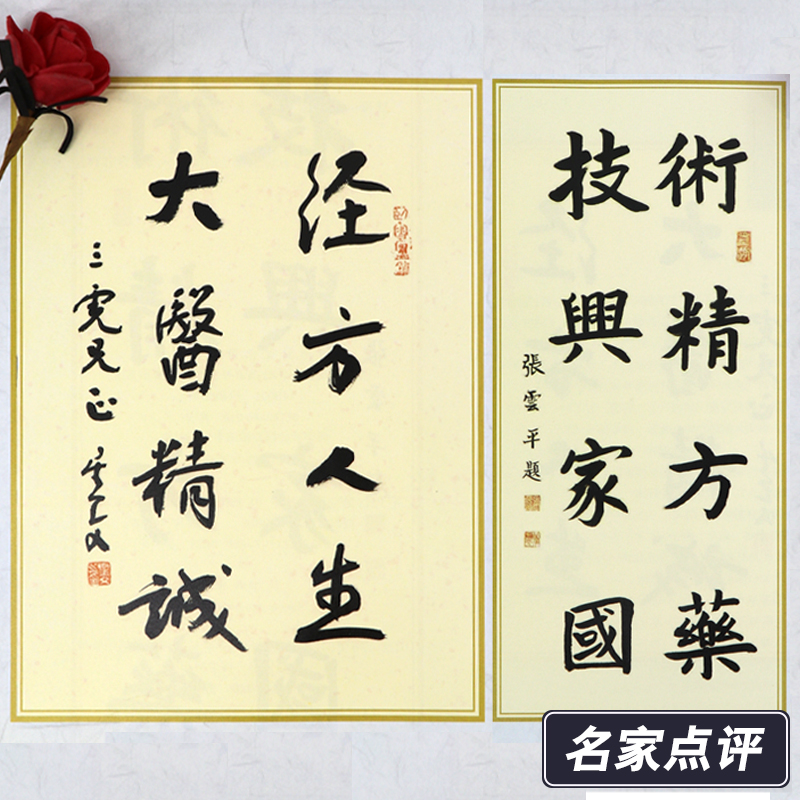 经方人生
大醫精誠
三虎兄正
術精方藥
技興家國
張雲平題
名家点评